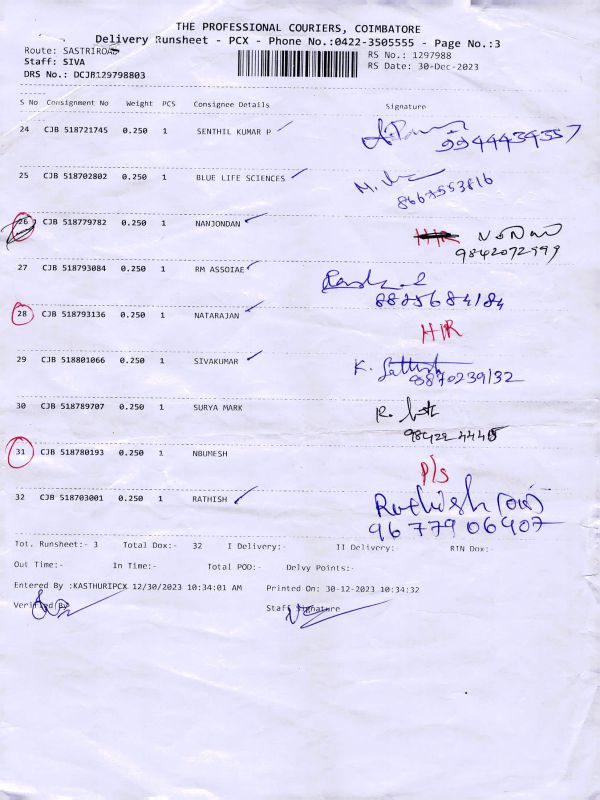 THE PROFESSIONAL COURIERS, COIMBATORE
Delivery Runsheet - PCX - Phone No.:0422-3505555 - Page No.:3
Route: SASTRIROAD
RS No.: 1297988
Staff: SIVA
RS Date: 30-Dec-2023
DRS No.: DCJB129798803
S No Consignment No Weight PCS Consignee Details Signature
24 CJB 518721745 0.250 1 SENTHIL KUMAR P
9944439557
25 CJB 518702802 0.250 1 BLUE LIFE SCIENCES
8667553816
26 CJB 518779782 0.250 1 NANJONDAN
9842072999
27 CJB 518793084 0.250 1 RM ASSOIAE
8825684184
28 CJB 518793136 0.250 1 NATARAJAN
HIR
29 CJB 518801066 0.250 1 SIVAKUMAR K.
9870239132
30 CJB 518789707 0.250 1 SURYA MARK R.
31 CJB 518780193 0.250 1 NBUMESH
P/S
32 CJB 518703001 0.250 1 RATHISH Rathish
9677906407
Tot. Runsheet:- 3 Total Dox:- 32 I Delivery:- II Delivery:- RTN Dox:-
Out Time:- In Time:- Total POD:- Delvy Points:-
Entered By :KASTHURIPCX 12/30/2023 10:34:01 AM Printed On: 30-12-2023 10:34:32
Verified By Staff Signature